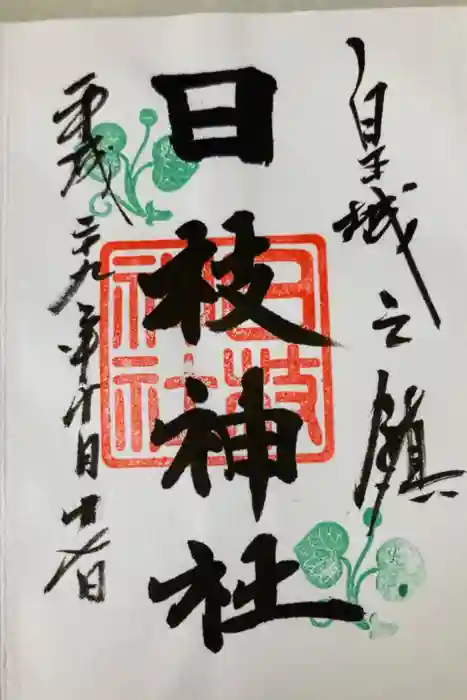 皇城之鎮
日枝神社
日枝神社
平成二十九年十月日